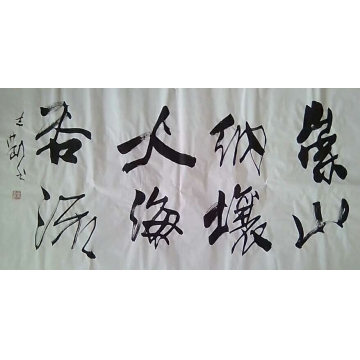 崇山
纳壤
大海
容流